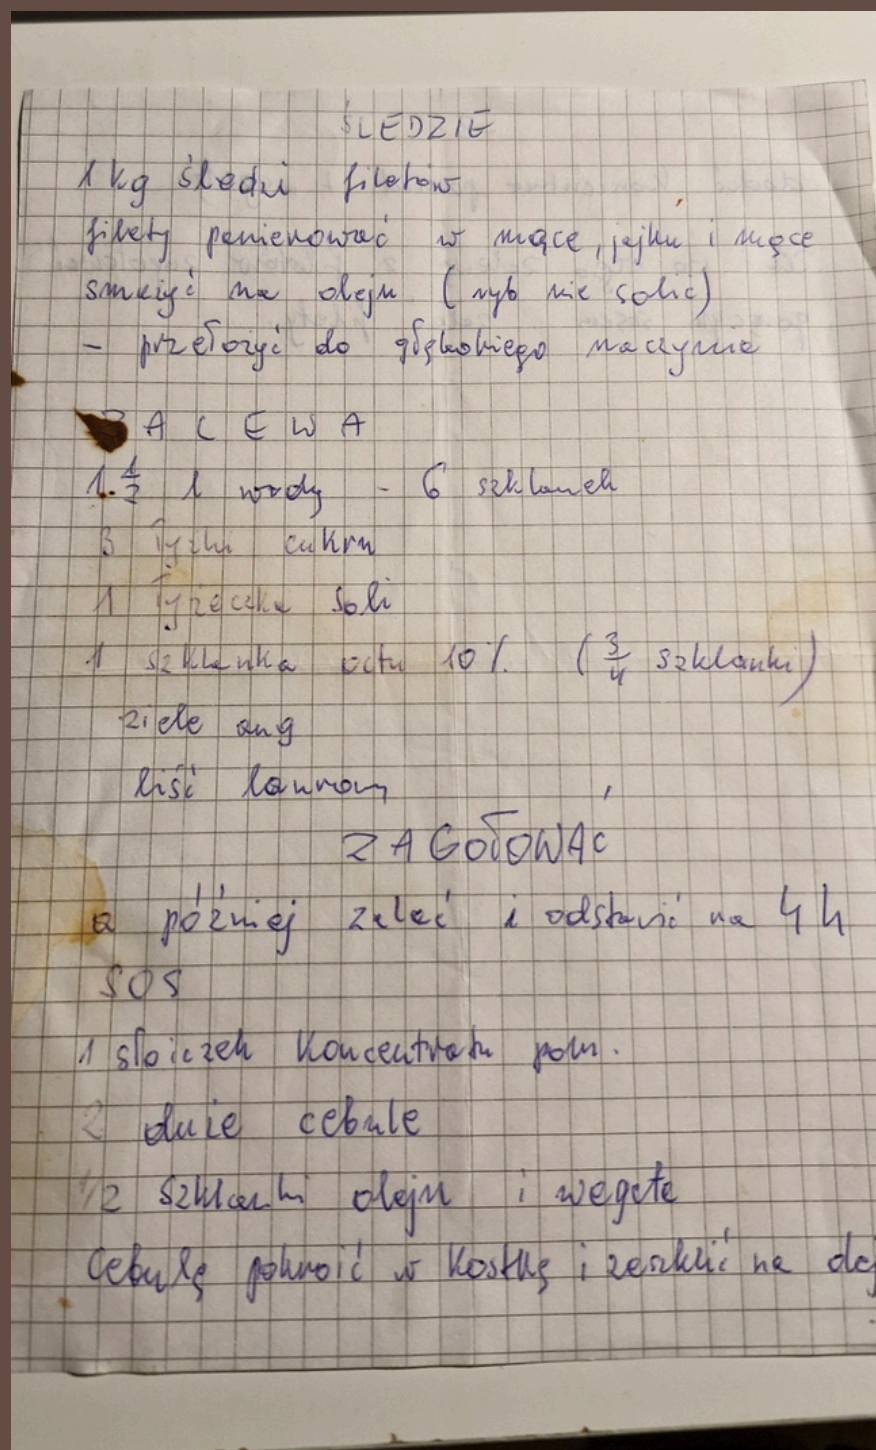 ŚLEDZIE
1 kg śledzi filetów
filety panierować w mące, jajku i mące
smażyć na oleju (ryb nie solić)
- przełożyć do głębokiego naczynia
ZALEWA
1.1/2 l wody - 6 szklanek
3 łyżki cukru
1 łyżeczka soli
1 szklanka octu 10% (3/4 szklanki)
ziele ang
liść laurowy
ZAGOTOWAĆ
a później zalać i odstawić na 4 h
SOS
1 słoiczek koncentratu pom.
2 duże cebule
1/2 szklanki oleju i wegeta
Cebulę pokroić w kostkę i zeszklić na olej